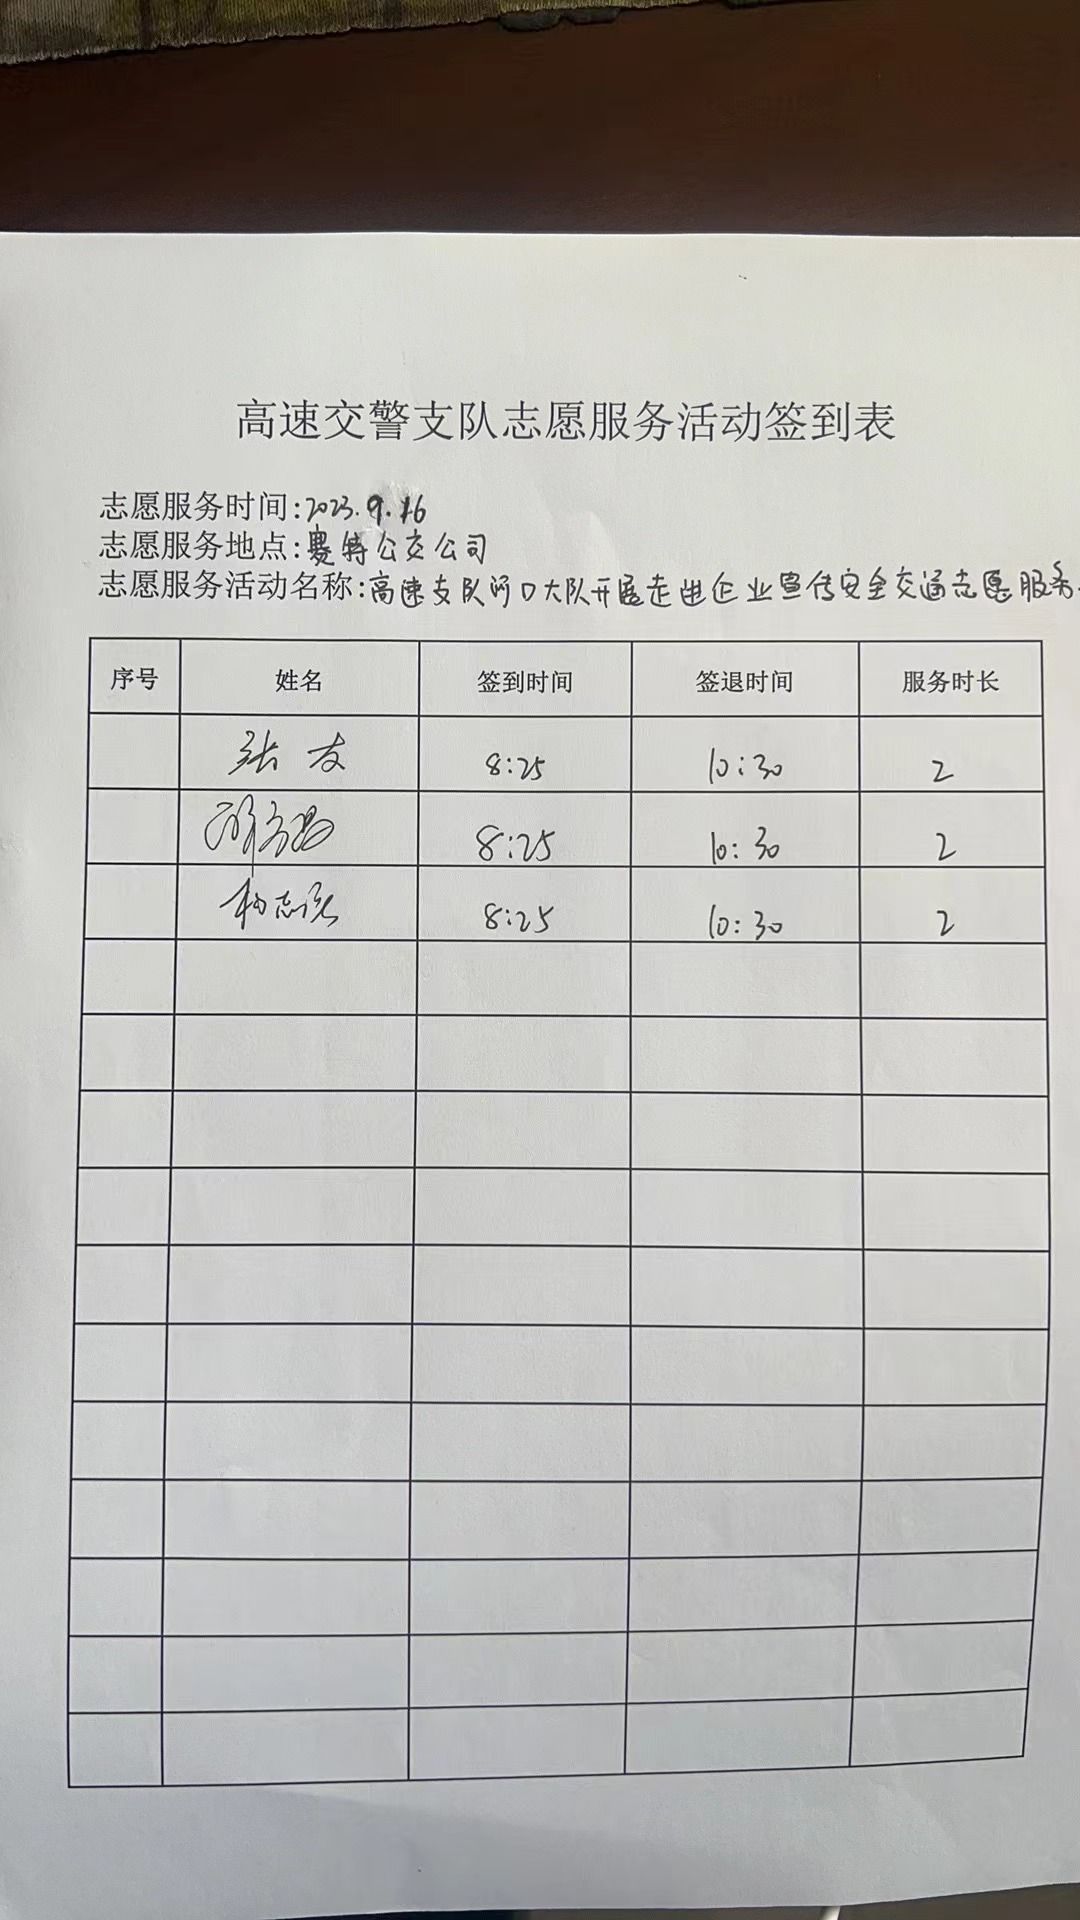 高速交警支队志愿服务活动签到表
志愿服务时间:2023.9.16
志愿服务地点:赛特公交公司
志愿服务活动名称:高速支队河口大队开展走进企业宣传安全交通志愿服务
序号 姓名 签到时间 签退时间 服务时长
张友 8:25 10:30 2
8:25 10:30 2
杨志 8:25 10:30 2